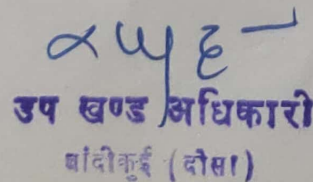 उप खण्ड अधिकारी
बांदीकुई (दौसा)